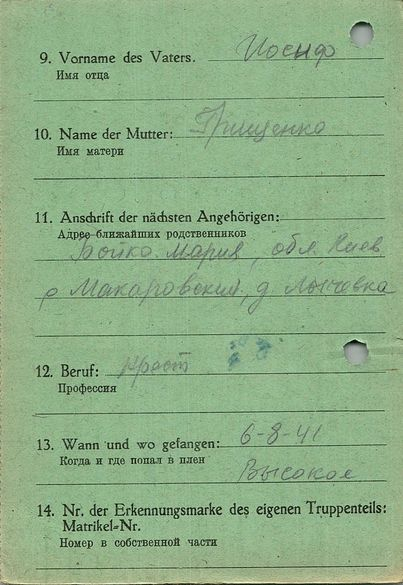 9. Vorname des Vaters. Иосиф
Имя отца
10. Name der Mutter: Грищенко
Имя матери
11. Anschrift der nächsten Angehörigen:
Адрес ближайших родственников
Бойко Мария, обл. Киев
р Макаровский, д
12. Beruf: крест
Профессия
13. Wann und wo gefangen: 6-8-41
Когда и где попал в плен
Высокое
14. Nr. der Erkennungsmarke des eigenen Truppenteils:
Matrikel=Nr.
Номер в собственной части